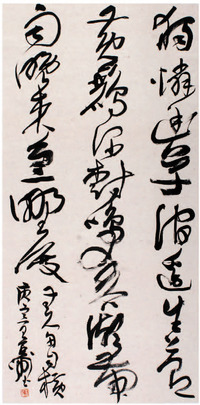 獨憐幽草澗邊生上
有黃鸝深樹鳴春潮帶
雨晚來急野渡
無人舟自橫
庚寅